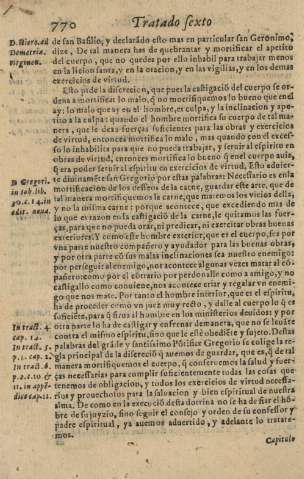 770 Tratado sexto
D. Hiero. ad
Demetria.
virginem.
de san Basilio, y declarādo esto mas en particular san Geronimo,
dize, De tal manera has de quebrantar y mortificar el apetito
del cuerpo, que no quedes por ello inhabil para trabajar menos
en la licion santa, y en la oracion, y en las vigilias, y en los demas
exercicios de virtud.
Esto pide la discrecion, que pues la castigació del cuerpo se or-
dena a mortificar lo malo, q̄ no mortifiquemos lo bueno que en el
ay: lo malo que ay en el hombre, es culpa, y la inclinacion y ape-
tito a la culpa: quando el hombre mortifica su cuerpo de tal ma-
nera, que le dexa fuerças suficientes para las obras y exercicios
de virtud, entonces mortifica lo malo, mas quando con el exces-
so lo inhabilita para que no pueda trabajar, y seruir al espiritu en
obras de virtud, entonces mortifica lo bueno q̄ en el cuerpo auia,
q̄ era poder seruir al espiritu en exercicios de virtud, Esto aduier-
te diuinamēte san Gregorio por estas palabras: Necessario es en la
D. Gregori.
in Iob. lib.
mortificacion de los desseos de la carne, guardar este arte, que de
tal manera mortifiquemos la carne, que muaramos los vicios della,
y no la misma carne: porque acontece, que excediendo mas de
lo que es razon en la castigació de la carne, le quitamos las fuer-
ças, para que no pueda orar, ni predicar, ni exercitar obras buenas
exteriores. Y como este hombre exterior, que es el cuerpo, sea por
vna parte nuestro compañero y ayudador para las buenas obras,
y por otra parte cō sus malas inclinaciones sea nuestro enemigo:
por perseguir al enemigo, nos acontece algunas vezes matar al cō-
pañero: como por el cōtrario por perdonalle como a amigo, y no
castigallo como conuiene, nos acontece criar y regalar vn enemi-
go que nos mate. Por tanto el hombre interior, que es el espiritu,
ha de proceder como vn juez muy recto, y dalle al cuerpo lo q̄ es
suficiēte, para q̄ sirua al hombre en los ministerios deuidos: y por
In tract. 4
cap. 14.
otra parte lo ha de castigar y enfrenar demanera, que no se leuāte
contra el mismo espiritu, sino que le esté obediēte y sujeto. Destas
In tract. 5.
p. 1. cap. 2.
palabras del grāde y santissimo Pōtifice Gregorio se colige la re-
gla principal de la discreció q̄ auemos de guardar, que es, q̄ de tal
In tract. 6.
manera mortifiquemos el cuerpo, q̄ conseruemos la salud y fuer-
ças necessarias para cumplir suficientemente todas las cosas que
tenemos de obligacion, y todos los exercicios de virtud necessa-
rios y prouechosos para la saluacion y bien espiritual de nuestra
alma. De como en la execució desta dotrina no se ha de fiar el hō-
bre de su juyzio, sino seguir el consejo y orden de su confessor y
padre espiritual, ya auemos aduertido, y adelante lo tratare-
mos.
Capitulo